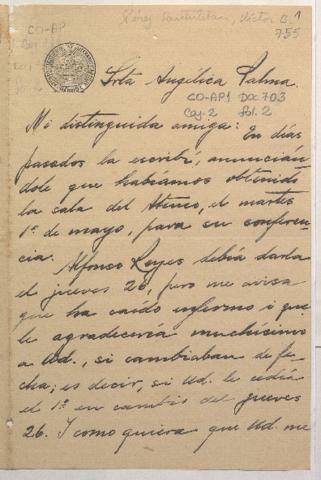 Pérez Santisteban, Víctor G. 1
755
CO-AP
Srta Angélica Palma.
CO-AP1 Doc 703
Caj. 2 Fol. 2
Mi distinguida amiga: En días
pasados la escribí, anuncián
dole que habíamos obtenido
la sala del Ateneo, el martes
1º de mayo, para su conferen-
cia. Alfonso Reyes debía darla
el jueves 26, pero me avisa
que ha caído enfermo i que
le agradecería muchísimo
a Ud., si cambiaban de fe-
cha; es decir, si Ud. le cedía
el 1º en cambio del jueves
26. I como quiera que Ud. me